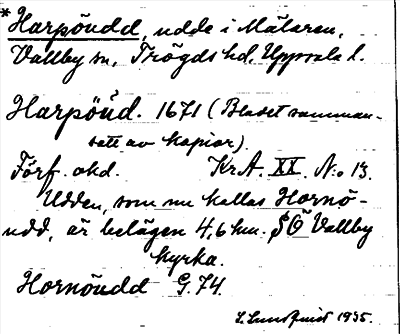 *Harpöudd, udde i Mälaren,
Vallby sn, Trögds hd. Uppsala l.
Harpöud. 1671 (Bladet samman-
satt av kopior).
Förf. okd. Kr.A. XX. N:o 13.
Udden, som nu kallas Hornö-
udd, är belägen 4,6 km. SÖ Vallby
kyrka.
Hornöudd G.74.
S. Lundquist 1935.